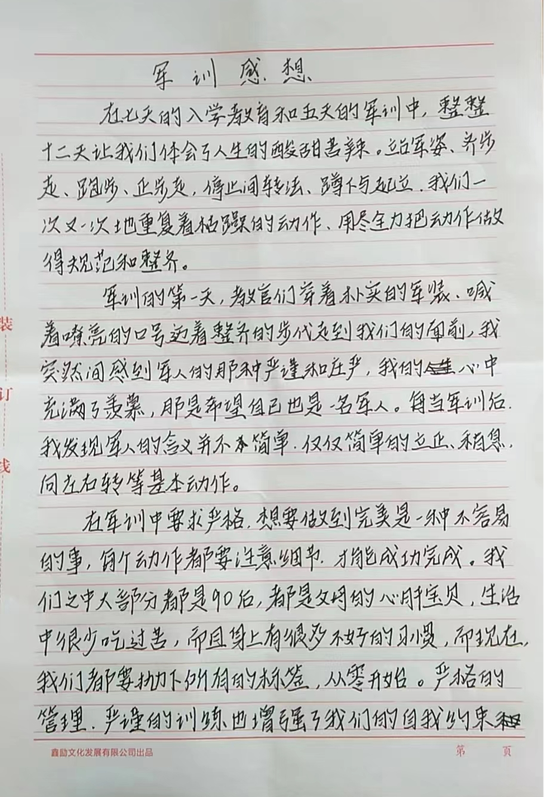 军训感想
在七天的入学教育和五天的军训中，整整
十二天让我们体会了人生的酸甜苦辣。立军姿、齐步
走、跑步、正步走，停止间转法、蹲下与起立，我们一
次又一次地重复着枯躁的动作、用尽全力把动作做
得规范和整齐。
军训的第一天，教官们穿着朴实的军装、喊
着嘹亮的口号迈着整齐的步伐走到我们的面前，我
突然间感到军人的那种严谨和庄严，我的心中
充满了羡慕，那是希望自己也是一名军人。每当军训后，
我发现军人的含义并不简单，仅仅简单的立正、稍息，
向左右转等基本动作。
在军训中要求严格，想要做到完美是一种不容易
的事，每个动作都要注意细节，才能成功完成。我
们之中大部分都是90后，都是父母的心肝宝贝，生活
中很少吃过苦，而且身上有很多不好的习惯，而现在，
我们都要抛下所有的标签，从零开始。严格的
管理、严谨的训练也增强了我们的自我约束和
装
订
线
鑫励文化发展有限公司出品
第 页